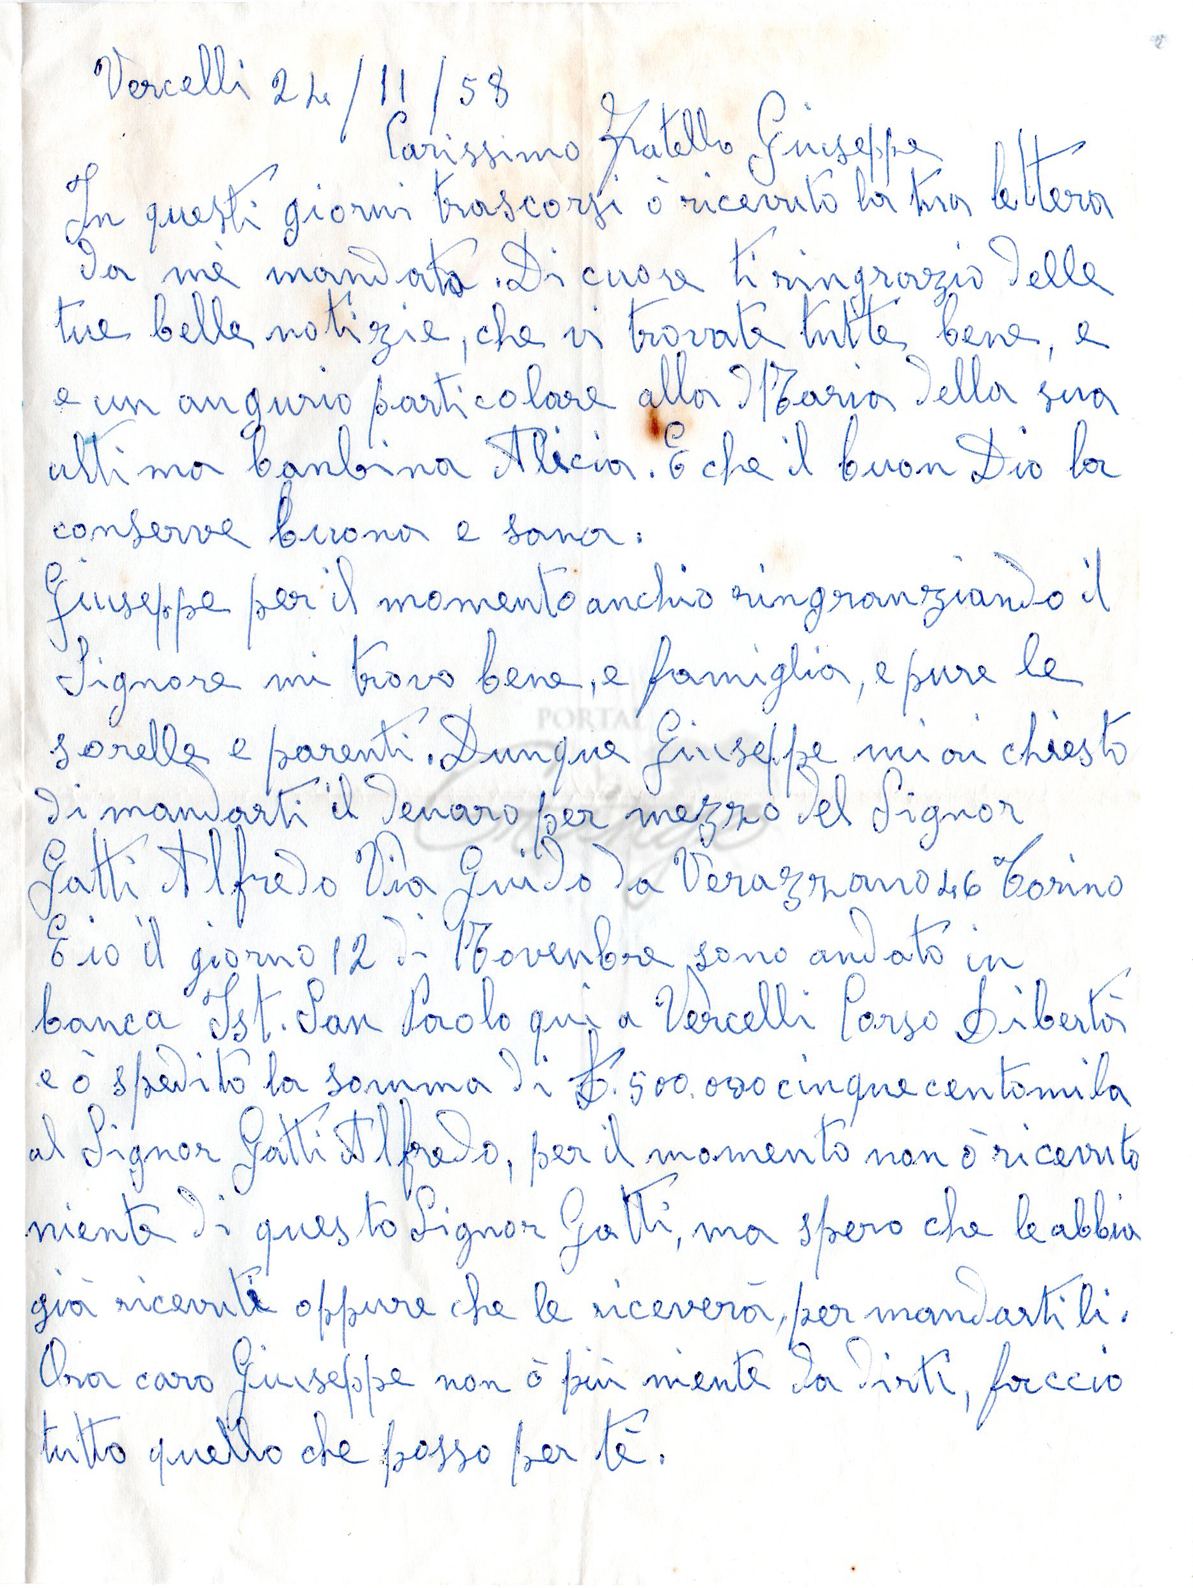 Vercelli 24/11/58
Carissimo Fratello Giuseppe
In questi giorni trascorsi ò ricevuto la tua lettera
da mè mandata. Di cuore ti ringrazio delle
tue belle notizie, che vi trovate tutte bene, e
e un augurio particolare alla Maria della sua
ultima banbina Alicia. E che il buon Dio la
conserve buona e sana.
Giuseppe per il momento anchio ringranziando il
Signore mi trovo bene, e famiglia, e pure le
sorelle e parenti. Dunque Giuseppe mi ai chiesto
PORTAL
di mandarti il denaro per mezzo del Signor
Gatti Alfredo Via Guido da Verazzano 46 Torino
E io il giorno 12 di Novenbre sono andato in
banca Ist. San Paolo qui a Vercelli Corso Libertà
e ò spedito la somma di £. 500.000 cinquecentomila
al Signor Gatti Alfredo, per il momento non ò ricevuto
niente di questo Signor Gatti, ma spero che le abbia
già ricevute oppure che le riceverà, per mandartili.
Ora caro Giuseppe non ò più niente da dirti, faccio
tutto quello che posso per tè.